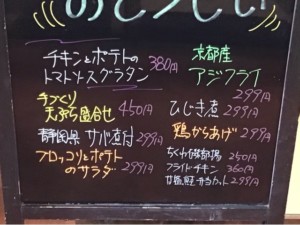 チキンとポテトの
トマトソースグラタン 380円
手づくり
天ぷら盛合せ 450円
静岡県 サバ煮付 299円
ブロッコリとポテト
のサラダ 299円
京都産
アジフライ
299円
ひじき煮 299円
鶏からあげ 299円
250円
フライドチキン 360円
299円